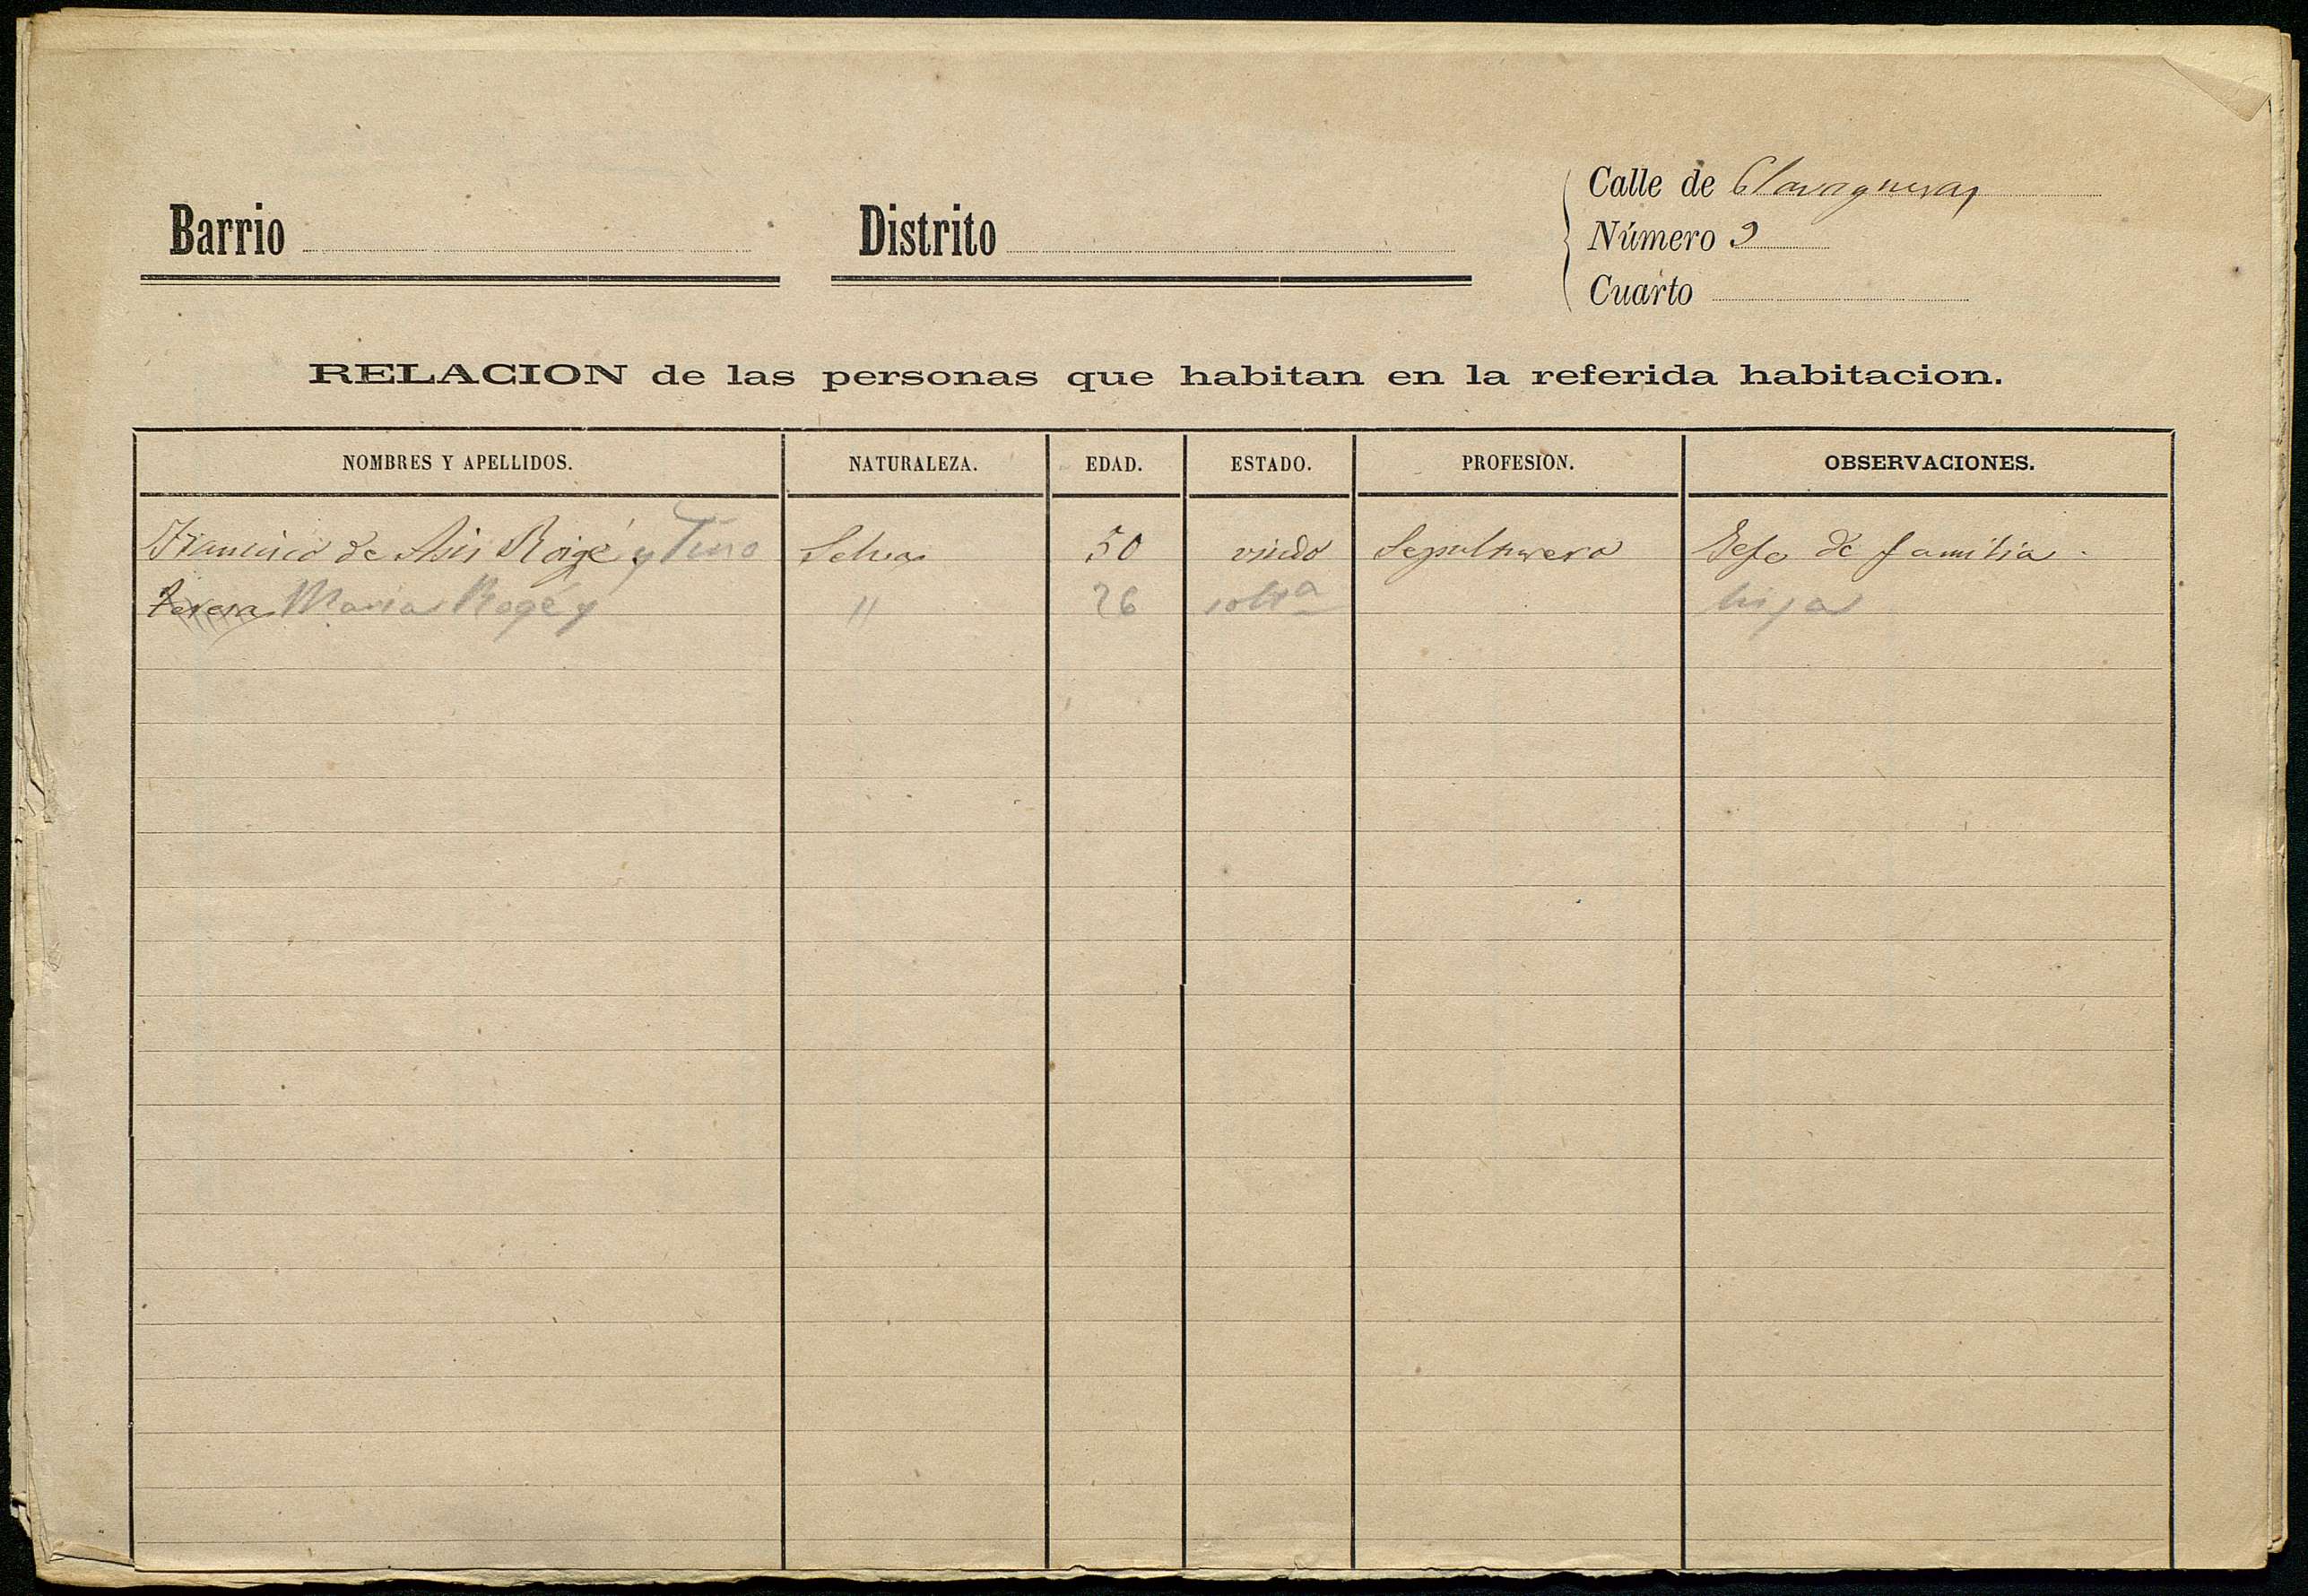 Barrio
Distrito
Calle de Clavagueras
Número 9
Cuarto
RELACION de las personas que habitan en la referida habitacion.
NOMBRES Y APELLIDOS. NATURALEZA. EDAD. ESTADO. PROFESION. OBSERVACIONES.
Francisco de Asis Roigé y Selva 50 viudo Sepulturero Gefe de familia
Teresa Maria Rogé y " 26 solt.a hija